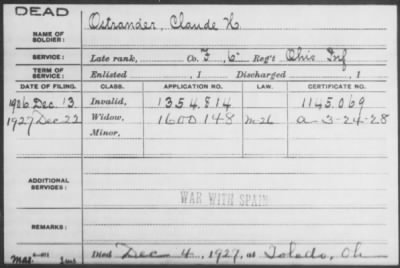 DEAD
NAME OF SOLDIER: Ostrander, Claude H.
SERVICE: Late rank, Co. F, 6" Reg't Ohio Inf
TERM OF SERVICE: Enlisted , 1 Discharged , 1
DATE OF FILING. CLASS. APPLICATION NO. LAW. CERTIFICATE NO.
1926 Dec. 13 Invalid, 1354,814 1145.069
1927 Dec 22 Widow, 1600148 M-26 a-3-24-28
Minor,
ADDITIONAL SERVICES:
WAR WITH SPAIN
REMARKS:
Died Dec 4, 1927, at Toledo, Oh